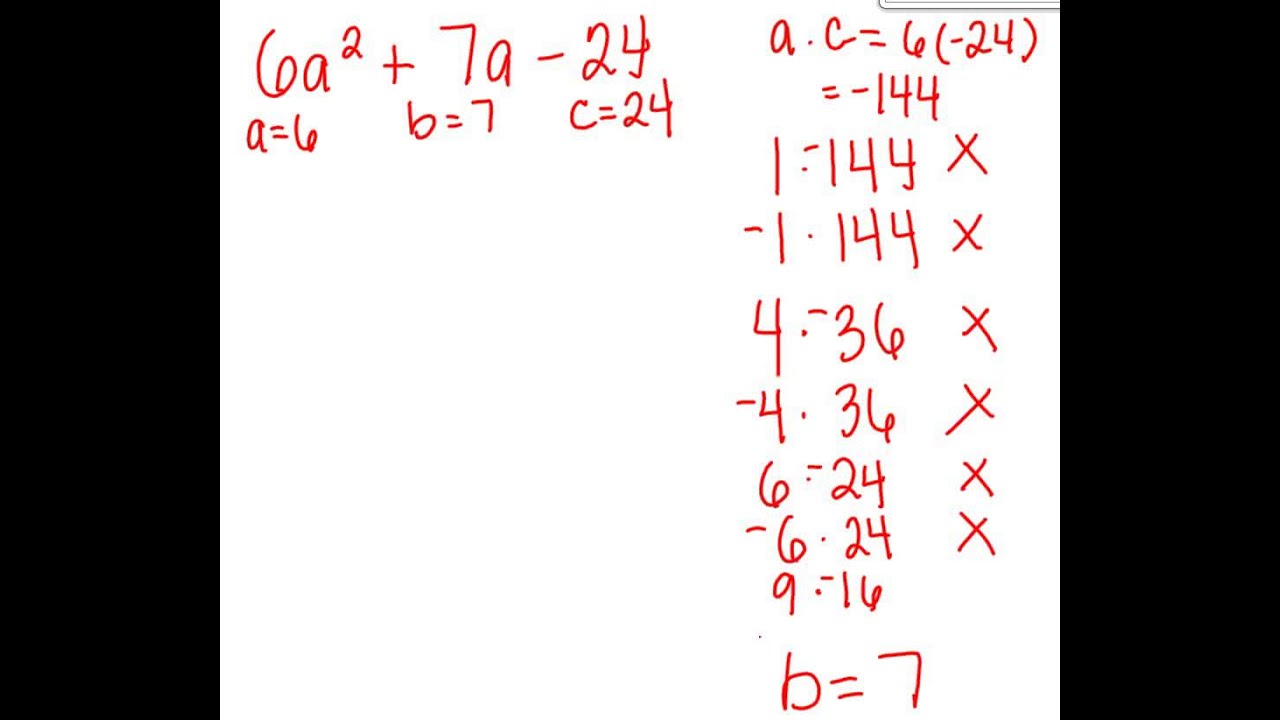 6a² + 7a - 24
a=6 b=7 c=24
a · c = 6(-24)
= -144
1 · -144 X
-1 · 144 X
4 · -36 X
-4 · 36 X
6 · -24 X
-6 · 24 X
9 · -16
b = 7